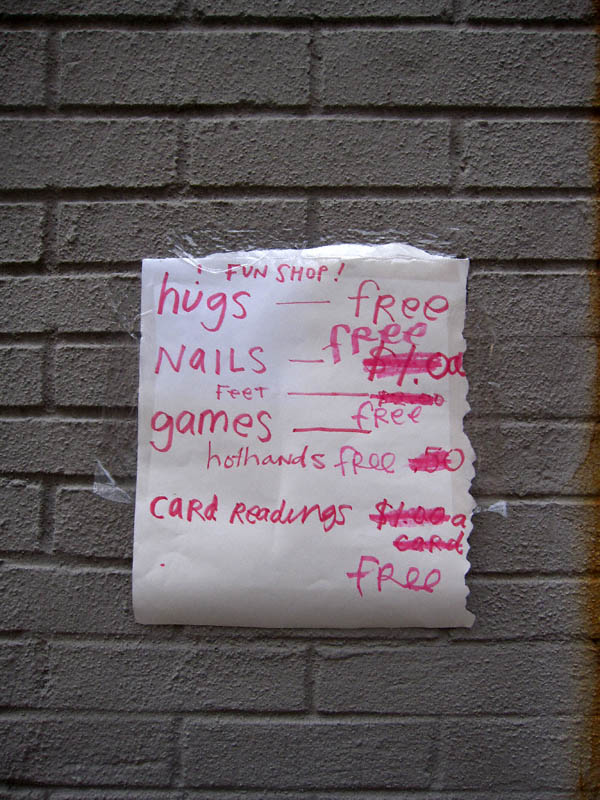 ! FUN SHOP!
hugs — fREE
fREE
NAILS — $1.00
FEET —
games — fREE
hothands fREE .50
CARD READINGS $1.00 a
CARD
fREE